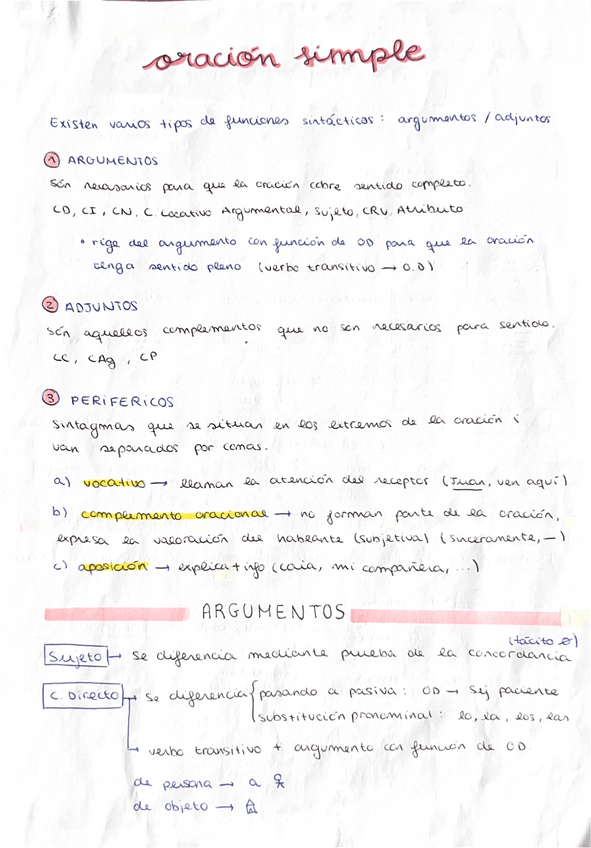 oración simple
Existen varios tipos de funciones sintácticas: argumentos / adjuntos
1 ARGUMENTOS
Són necesarios para que la oración cobre sentido completo.
CD, CI, CN, C. Locativo Argumental, Sujeto, CRV, Atributo
• rige del argumento con función de OD para que la oración
tenga sentido pleno (verbo transitivo → O.D)
2 ADJUNTOS
Són aquellos complementos que no son necesarios para sentido.
CC, CAg, CP
3 PERIFERICOS
Sintagmas que se situan en los extremos de la oración i
van separados por comas.
a) vocativo → llaman la atención del receptor (Juan, ven aquí)
b) complemento oracional → no forman parte de la oración,
expresa la valoración del hablante (subjetiva) (sinceramente, —)
c) aposición → explica + info (caia, mi compañera, ...)
ARGUMENTOS
(tácito ∅)
Sujeto → se diferencia mediante prueba de la concordancia
C. Directo → se diferencia { pasando a pasiva: OD → Sij paciente
substitución pronominal: lo, la, los, las
→ verbo transitivo + argumento con función de OD.
de persona → a
de objeto →